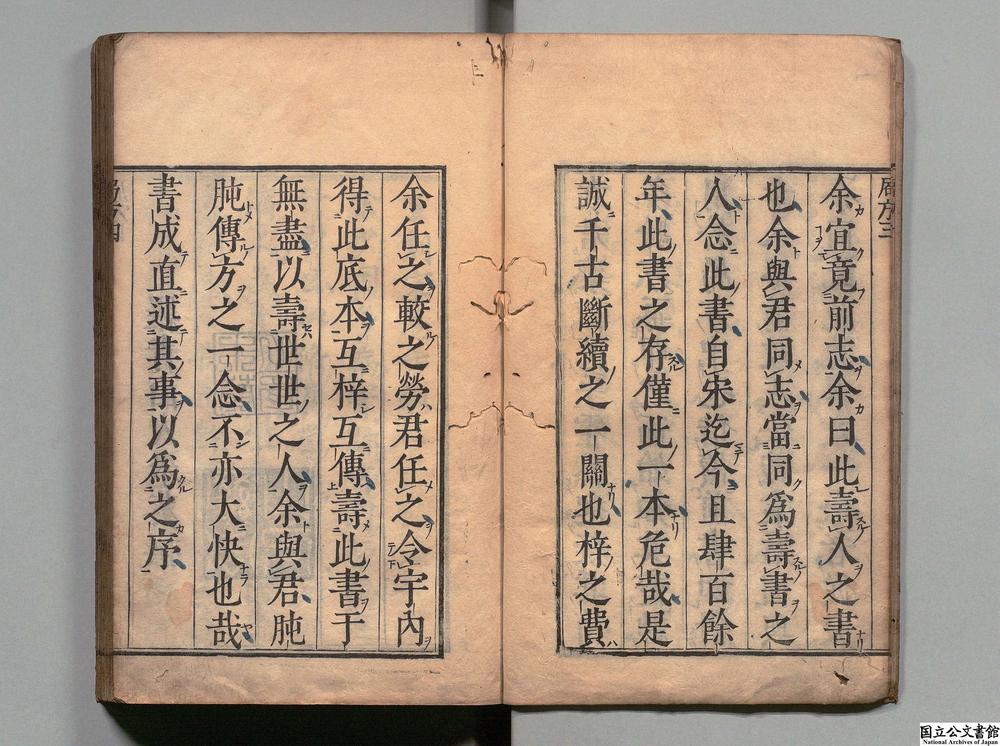 局方三
余宜竟前志余曰此壽人之書
也余與君同志當同爲壽書之
人念此書自宋迄今且肆百餘
年此書之存僅此一本危哉是
誠千古斷續之一關也梓之費
余任之較之勞君任之令宇內
得此底本互梓互傳壽此書于
無盡以壽世世之人余與君肫
肫傳方之一念不亦大快也哉
書成直述其事以爲之序
国立公文書館
National Archives of Japan